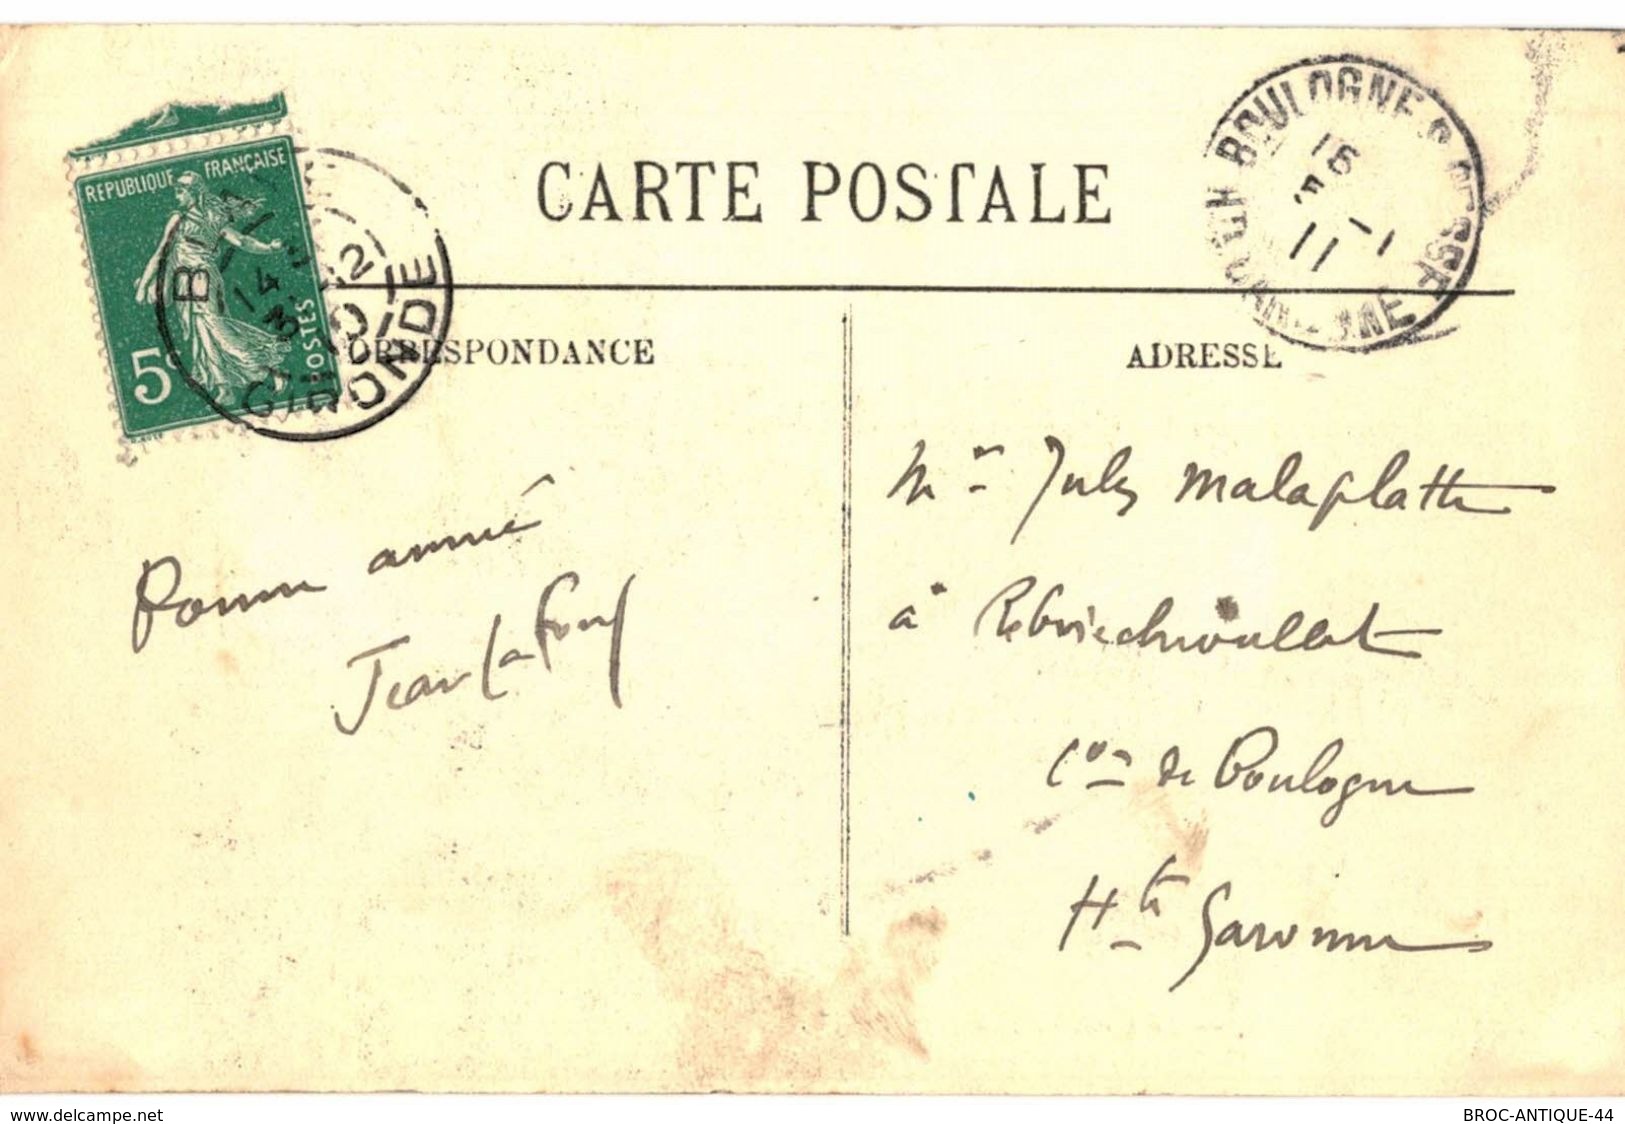 REPUBLIQUE FRANÇAISE
5c
POSTES
GIRONDE
CARTE POSTALE
BOULOGNE S. GESSE
HTE GARONNE
16
11
CORRESPONDANCE
ADRESSE
Bonne année
Jean Lafont
Mr Jules Malaplatte
à
Cne de Boulogne
Hte Garonne
www.delcampe.net
BROC-ANTIQUE-44